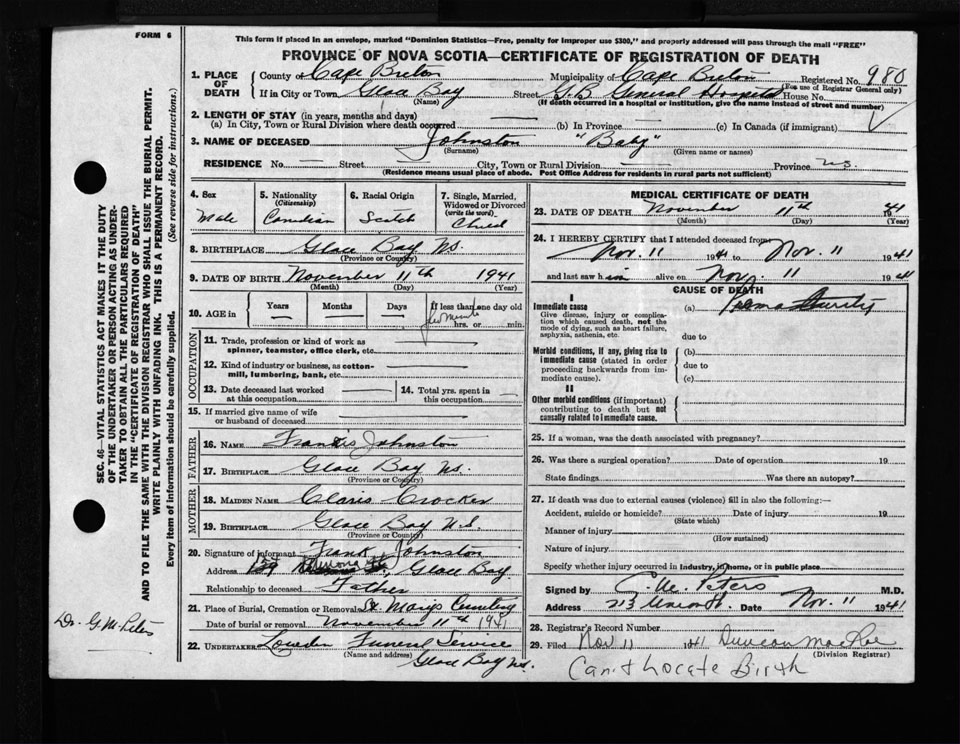 FORM 6
This form if placed in an envelope, marked "Dominion Statistics—Free, penalty for improper use $300," and properly addressed will pass through the mail "FREE"
PROVINCE OF NOVA SCOTIA—CERTIFICATE OF REGISTRATION OF DEATH
1. PLACE OF DEATH
County of Cape Breton Municipality of Cape Breton Registered No. 980
(For use of Registrar General only)
If in City or Town Glace Bay Street General Hospital House No.
(Name) (If death occurred in a hospital or institution, give the name instead of street and number)
2. LENGTH OF STAY (in years, months and days)
(a) In City, Town or Rural Division where death occurred (b) In Province (c) In Canada (if immigrant)
3. NAME OF DECEASED Johnston "Baby"
(Surname) (Given name or names)
RESIDENCE No. — Street — City, Town or Rural Division — Province N.S.
(Residence means usual place of abode. Post Office Address for residents in rural parts not sufficient)
4. Sex Male
5. Nationality (Citizenship) Canadian
6. Racial Origin Scotch
7. Single, Married, Widowed or Divorced (write the word) Child
8. BIRTHPLACE Glace Bay N.S.
(Province or Country)
9. DATE OF BIRTH November 11th 1941
(Month) (Day) (Year)
10. AGE in Years Months Days If less than one day old
hrs. or min.
OCCUPATION
11. Trade, profession or kind of work as spinner, teamster, office clerk, etc.
12. Kind of industry or business, as cotton-mill, lumbering, bank, etc.
13. Date deceased last worked at this occupation
14. Total yrs. spent in this occupation
15. If married give name of wife or husband of deceased
FATHER
16. NAME Francis Johnston
17. BIRTHPLACE Glace Bay N.S.
(Province or Country)
MOTHER
18. MAIDEN NAME Claris Crocker
19. BIRTHPLACE Glace Bay N.S.
(Province or Country)
20. Signature of informant Frank Johnston
Address Glace Bay
Relationship to deceased Father
21. Place of Burial, Cremation or Removal St. Marys Cemetery
Date of burial or removal November 11th 1941
22. UNDERTAKER Funeral Service
(Name and address) Glace Bay N.S.
MEDICAL CERTIFICATE OF DEATH
23. DATE OF DEATH November 11th 1941
(Month) (Day) (Year)
24. I HEREBY CERTIFY that I attended deceased from
Nov. 11 1941 to Nov. 11 1941
and last saw him alive on Nov. 11 1941
CAUSE OF DEATH
I
Immediate cause
Give disease, injury or complication which caused death, not the mode of dying, such as heart failure, asphyxia, asthenia, etc.
(a)
due to
Morbid conditions, if any, giving rise to immediate cause (stated in order proceeding backwards from immediate cause).
(b)
due to
(c)
II
Other morbid conditions (if important) contributing to death but not causally related to immediate cause.
25. If a woman, was the death associated with pregnancy?
26. Was there a surgical operation? Date of operation 19
State findings Was there an autopsy?
27. If death was due to external causes (violence) fill in also the following:—
Accident, suicide or homicide? Date of injury 19
(State which)
Manner of injury
(How sustained)
Nature of injury
Specify whether injury occurred in industry, in home, or in public place
Signed by Peters M.D.
Address 213 Union St. Date Nov. 11 1941
28. Registrar's Record Number
29. Filed Nov 11 1941 Duncan MacRae
(Division Registrar)
Can't Locate Birth
SEC. 46—VITAL STATISTICS ACT MAKES IT THE DUTY
OF THE UNDERTAKER OR PERSON ACTING AS UNDER-
TAKER TO OBTAIN ALL THE PARTICULARS REQUIRED
IN THE "CERTIFICATE OF REGISTRATION OF DEATH"
AND TO FILE THE SAME WITH THE DIVISION REGISTRAR WHO SHALL ISSUE THE BURIAL PERMIT.
WRITE PLAINLY WITH UNFADING INK. THIS IS A PERMANENT RECORD.
Every item of information should be carefully supplied. (See reverse side for instructions.)
Dr. G. M. Peters